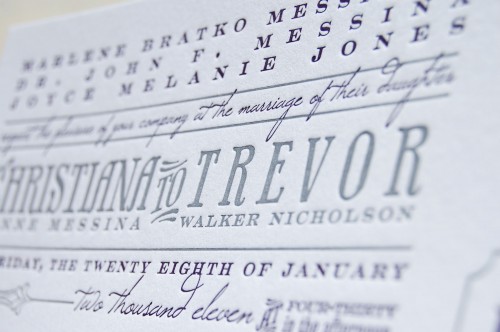 MARLENE BRATKO MESSINA
DR. JOHN F. MESSINA
JOYCE MELANIE JONES
request the pleasure of your company at the marriage of their daughter
CHRISTIANA TO TREVOR
NNE MESSINA WALKER NICHOLSON
RIDAY, THE TWENTY EIGHTH OF JANUARY
two thousand eleven AT FOUR-THIRTY
in the afternoon